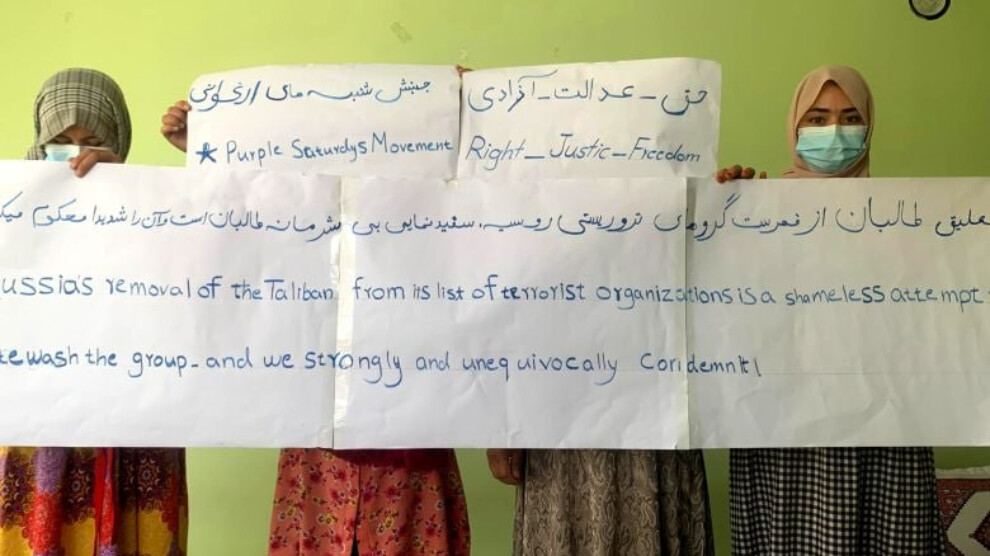 جنبش شنبه های ارغوانی
★ Purple Saturdys Movement
حق - عدالت - آزادی
Right - Justic - Freedom
تعلیق طالبان از فهرست گروهای تروریستی روسیه، سفیدنمایی بی شرمانه طالبان است و آن را شدیدا محکوم میک
ussia's removal of the Taliban from its list of terrorist organizations is a shameless attempt
tewash the group - and we strongly and unequivocally Condemn it!